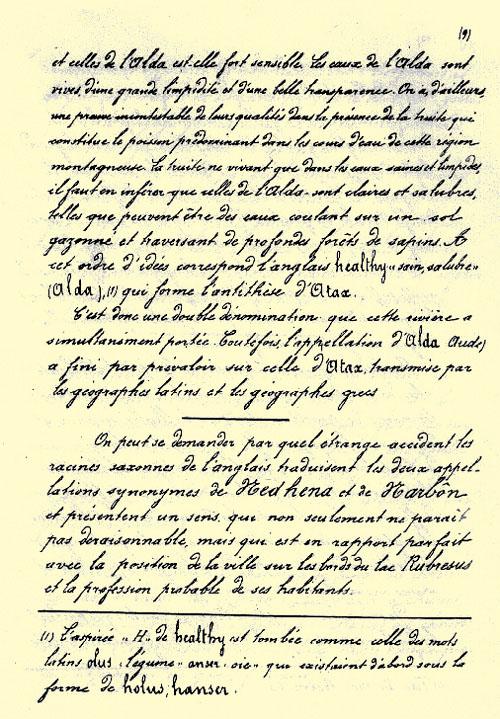 (9)
et celles de l'Alda est-elle fort sensible. Les eaux de l'Alda sont
vives, d'une grande limpidité et d'une belle transparence. On a, d'ailleurs,
une preuve incontestable de leurs qualités dans la présence de la truite qui
constitue le poisson prédominant dans les cours d'eau de cette région
montagneuse. La truite ne vivant que dans les eaux saines et limpides,
il faut en inférer que celles de l'Alda sont claires et salubres,
telles que peuvent être des eaux coulant sur un sol
gazonné et traversant de profondes forêts de sapins. A
cet ordre d'idées correspond l'anglais healthy "sain, salubre"
(Alda),(1) qui forme l'antithèse d'Atax.
C'est donc une double dénomination que cette rivière a
simultanément portée. Toutefois, l'appellation d'Alda (Aude)
a fini par prévaloir sur celle d'Atax, transmise par
les géographes latins et les géographes grecs
On peut se demander par quel étrange accident les
racines saxonnes de l'anglais traduisent les deux appel-
lations synonymes de Nedhena et de Narbôn
et présentent un sens, qui non seulement ne paraît
pas deraisonnable, mais qui est en rapport parfait
avec la position de la ville sur les bords du lac Rubresus
et la profession probable de ses habitants.
(1) L'aspirée "H" de healthy est tombée comme celle des mots
latins olus "légume" anser "oie" qui existaient d'abord sous la
forme de holus, hanser.